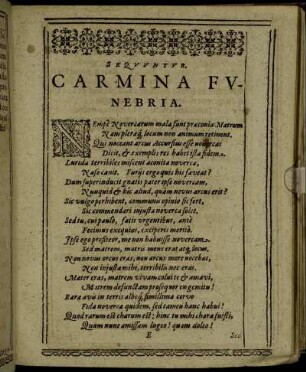 SEQVVNTVR
CARMINA FV-
NEBRIA.
NEmpè Novercarum mala sunt præconia: Matrum
Nam pleræq; locum non animum retinent.
Qui noceant arcus Accursius esse novercas
Dicit, & exemplis res habet ista fidem.
Lurida terribiles miscent aconita novercæ,
Naso canit. Furijs ergo quis his faveat?
Dum superinducit gnatis pater ipse novercam,
Nunquid & his aliud, quàm novus arcus erit?
Sic vulgo perhibent, communis opinio sic fert,
Sic commendari injusta noverca solet.
Sed tu, cui paulò, fatis urgentibus, antè
Fecimus exequias, exciperis meritò.
Ipse ego profiteor, me non habuisse novercam.
Sed matrem, matris mens erat atq; locus.
Nam novus arcus eras, non arcus more nocebas,
Non injusta mihi, terribilis nec eras.
Mater eras, matrem vivam colui te & amavi,
Matrem defunctam prosequor ingemitu!
Rara avis in terris alboq; simillima cervo
Fida noverca quidem, sed tamen hanc habui!
Quod rarum est charum est; hinc tu mihi chara fuisti,
Quàm nunc amissam lugeo! quem doleo!
E